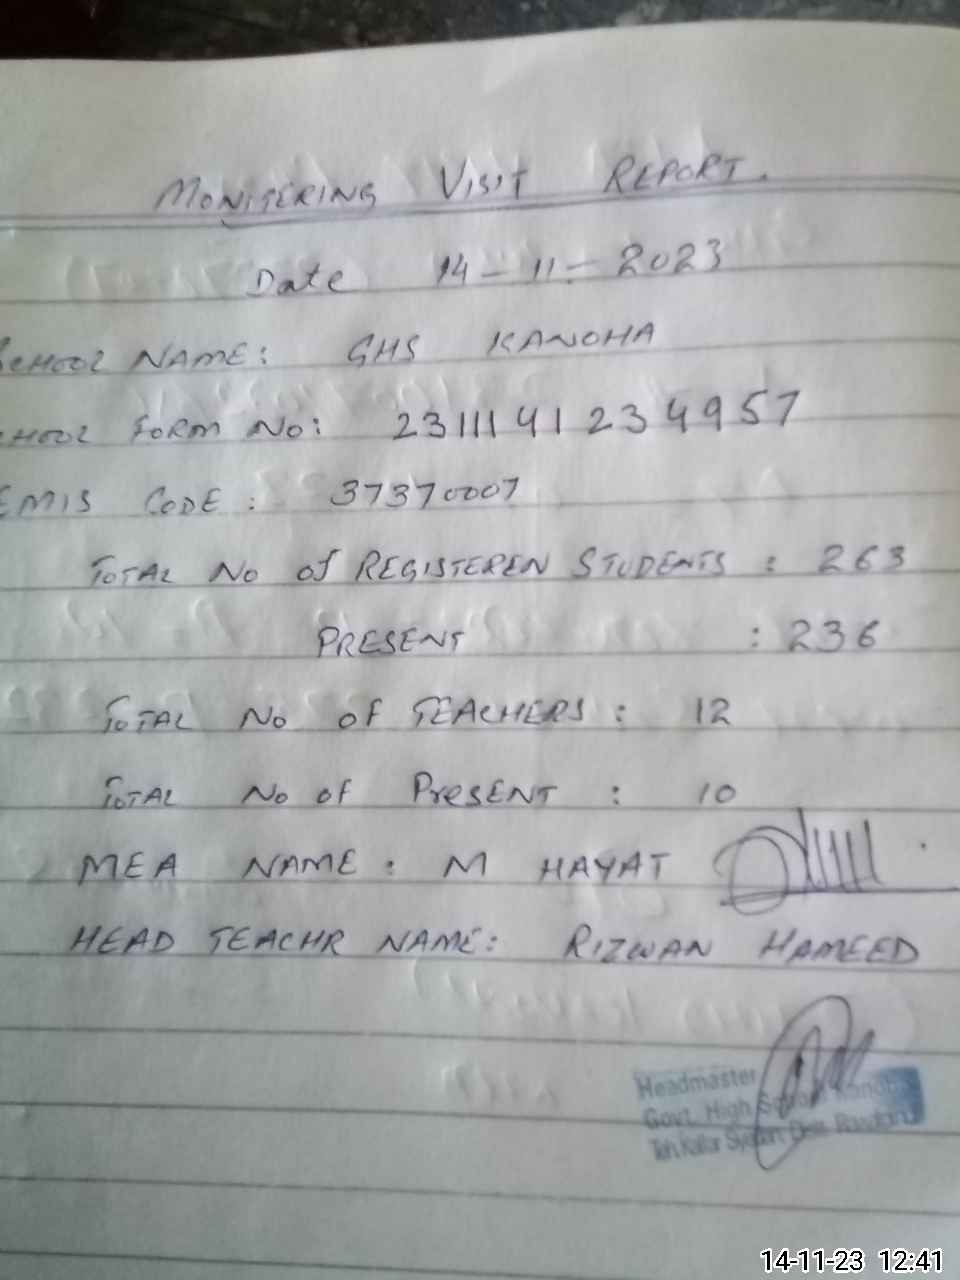 MONITERING VISIT REPORT.
Date 14-11-2023
SCHOOL NAME: GHS KANOHA
SCHOOL FORM No: 231114123 4957
EMIS CODE: 37370007
TOTAL No of REGISTEREN STUDENTS : 263
PRESENT : 236
TOTAL No OF TEACHERS : 12
TOTAL No of PresENT : 10
MEA NAME: M HAYAT
HEAD TEACHR NAME: RIZWAN HAMEED
Headmaster
Govt. High School Kanoha
Teh Kallar Syedan Distt.
14-11-23 12:41